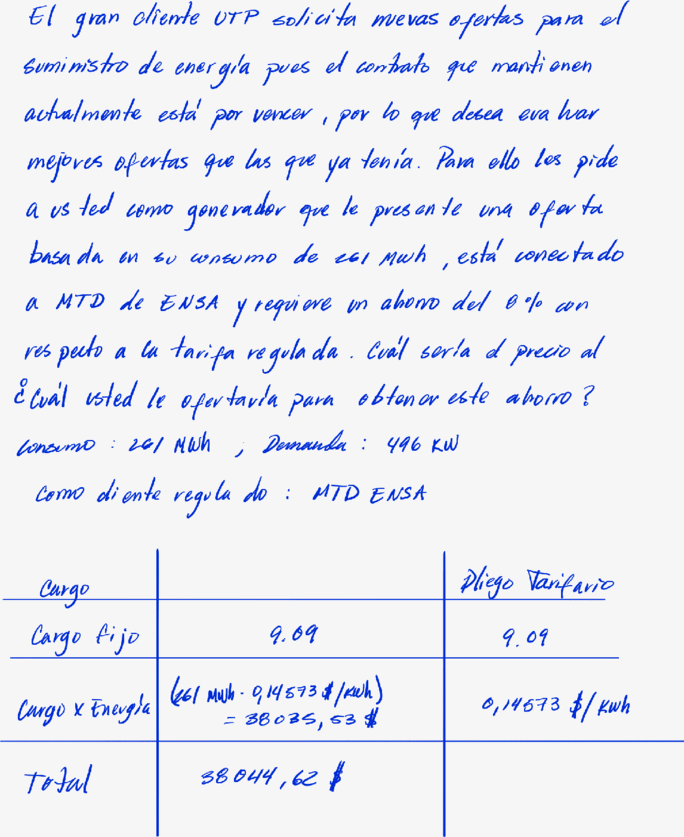 El gran cliente UTP solicita nuevas ofertas para el
suministro de energía pues el contrato que mantienen
actualmente está por vencer, por lo que desea evaluar
mejores ofertas que las que ya tenía. Para ello les pide
a usted como generador que le presente una oferta
basada en su consumo de 261 MWh, está conectado
a MTD de ENSA y requiere un ahorro del 8% con
respecto a la tarifa regulada. Cuál sería el precio al
¿Cuál usted le ofertaría para obtener este ahorro?
Consumo : 261 MWh ; Demanda : 496 KW
Como cliente regulado : MTD ENSA
Cargo Pliego Tarifario
Cargo fijo 9.09 9.09
Cargo x Energía (261 MWh · 0,14573 $/KWh) 0,14573 $/KWh
= 38035,53 $
Total 38044,62 $